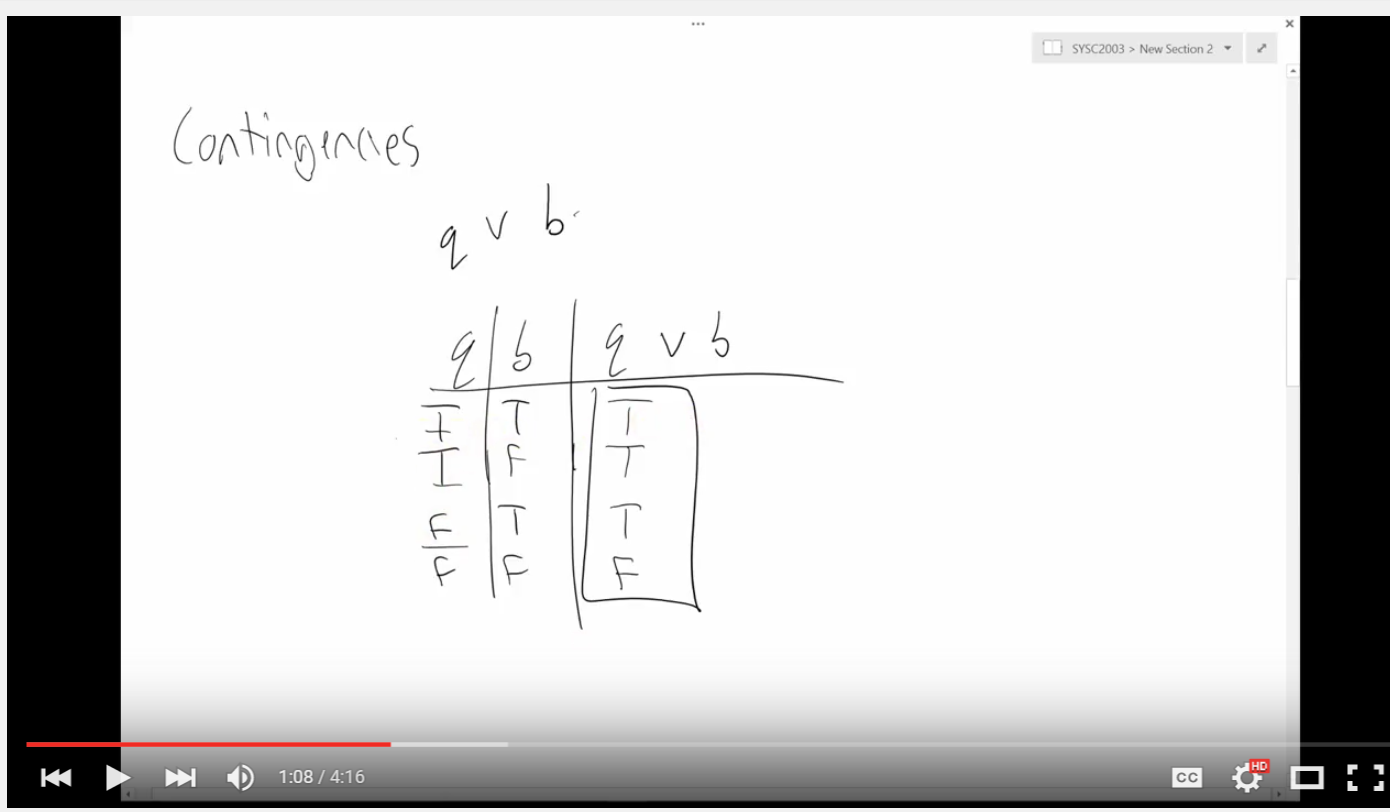 ...
SYSC2003 > New Section 2
Contingencies
q v b
q b q v b
T T T
T F T
F T T
F F F
1:08 / 4:16
CC HD